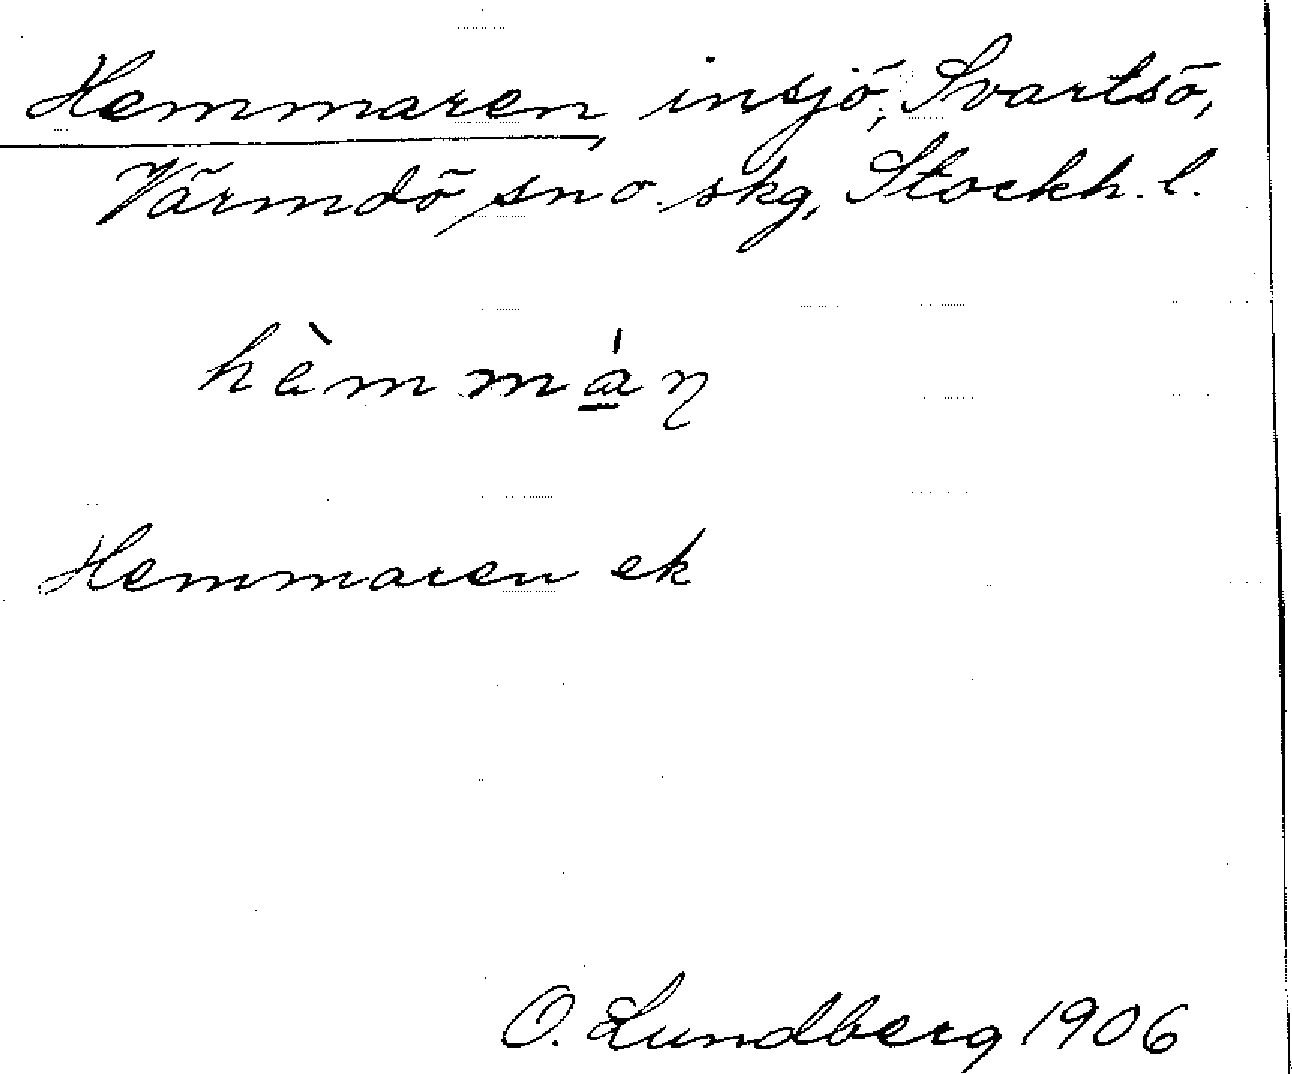 Hemmaren, insjö, Svartsö,
Värmdö sn o. skg, Stockh. l.
hèmmá̲ɳ
Hemmaren ek
O. Lundberg 1906